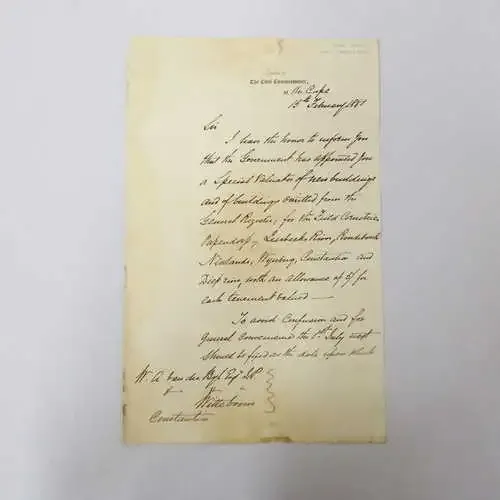 Office of
The Civil Commissioner,
of the Cape
15th February 1881
Sir
I have the honor to inform you
that the Government has appointed you
a Special Valuator of new buildings
and of buildings omitted from the
General Register, for the Field Cornetcies
Papendorp, Liesbeeks River, Rondebosch
Newlands, Wynberg, Constantia and
Diep river, with an allowance of 5/ for
each tenement valued —
To avoid Confusion and for
general convenience the 1st July next
should be fixed as the date upon which
W. A. van der Byl Esq J.P.
Witteboom
Constantia